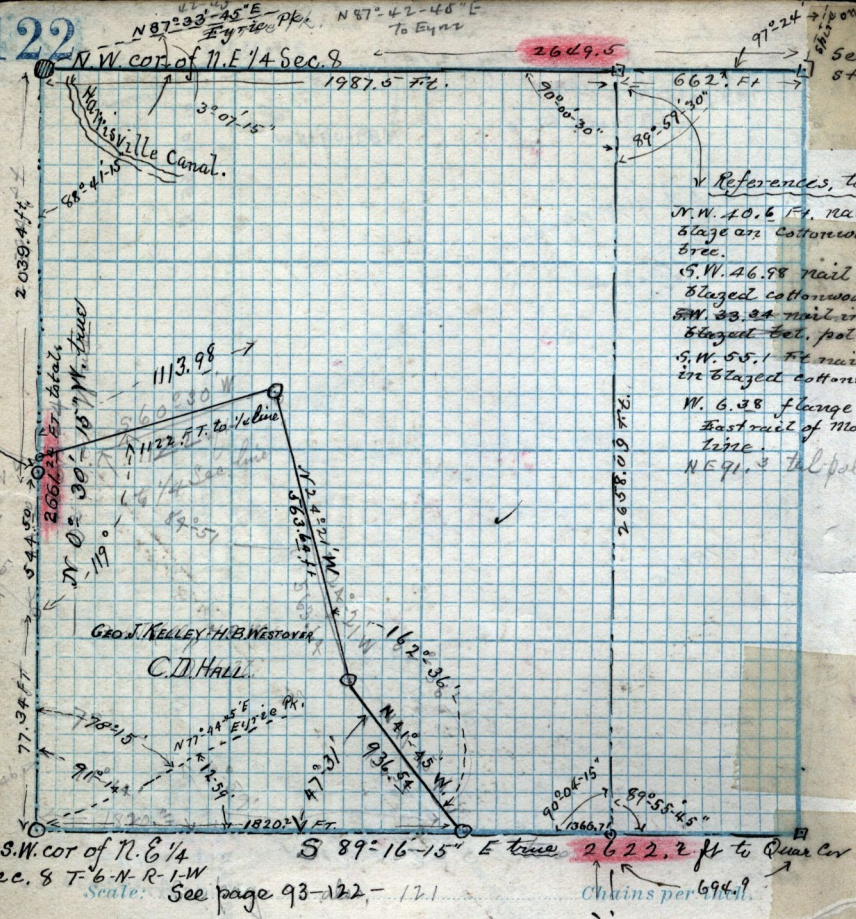 122
N 87°-33'-45" E
Eyrie Pk.
N 87°-42-45" E
To Eyrie
97°-24'
N.W. cor. of N.E 1/4 Sec. 8
2649.5
1987.5 Ft.
662.1 Ft
3°-07'-15"
90°-00'-30"
89°-59'-30"
Harrisville Canal.
88°-41'-15
2039.4 ft,
References, to
N.W. 40.6 Ft. na
blaze an cottonwo
tree.
S.W. 46.98 nail
blazed cottonwo
S.W. 33.34 nail in
blazed tel. pol
S.W. 55.1 Ft nai
in blazed cotton
W. 6.38 flange
East rail of Ma
line.
NE 91.3 tel-pol
2661.24 FT total.
N 0° 30'-15" W. true
1113.98
S 60°30 W
1122. FT. to 1/4 line
1/4 Sec line
84°-51
119°
544.50
N 24°-21' W
563.64 ft
2658.09 Ft.
GEO. J. KELLEY - H.B. WESTOVER
C.D. HALL
162°-36'
77.34 FT
778°-15'
N 77°-44'-45" E
Eyrie Pk.
91°-14
12-59'
47°-31'
N 41°-45' W.
936.54
90°-04-15"
89°-55-45"
1820.2 FT.
1366.7
S.W. cor of N.E 1/4
ec. 8 T-6-N-R-1-W
S 89°-16-15" E true 2622.2 ft to Quar Cor
694.9
Scale:
See page 93-122- 121
Chains per inch.